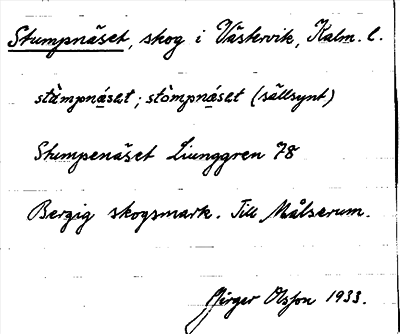 Stumpnäset, skog i Västervik, Kalm. l.
stùmpnäset; stòmpnäset (sällsynt)
Stumpenäset Liunggren 78
Bergig skogsmark. Till Målserum.
Birger Olsson 1933.